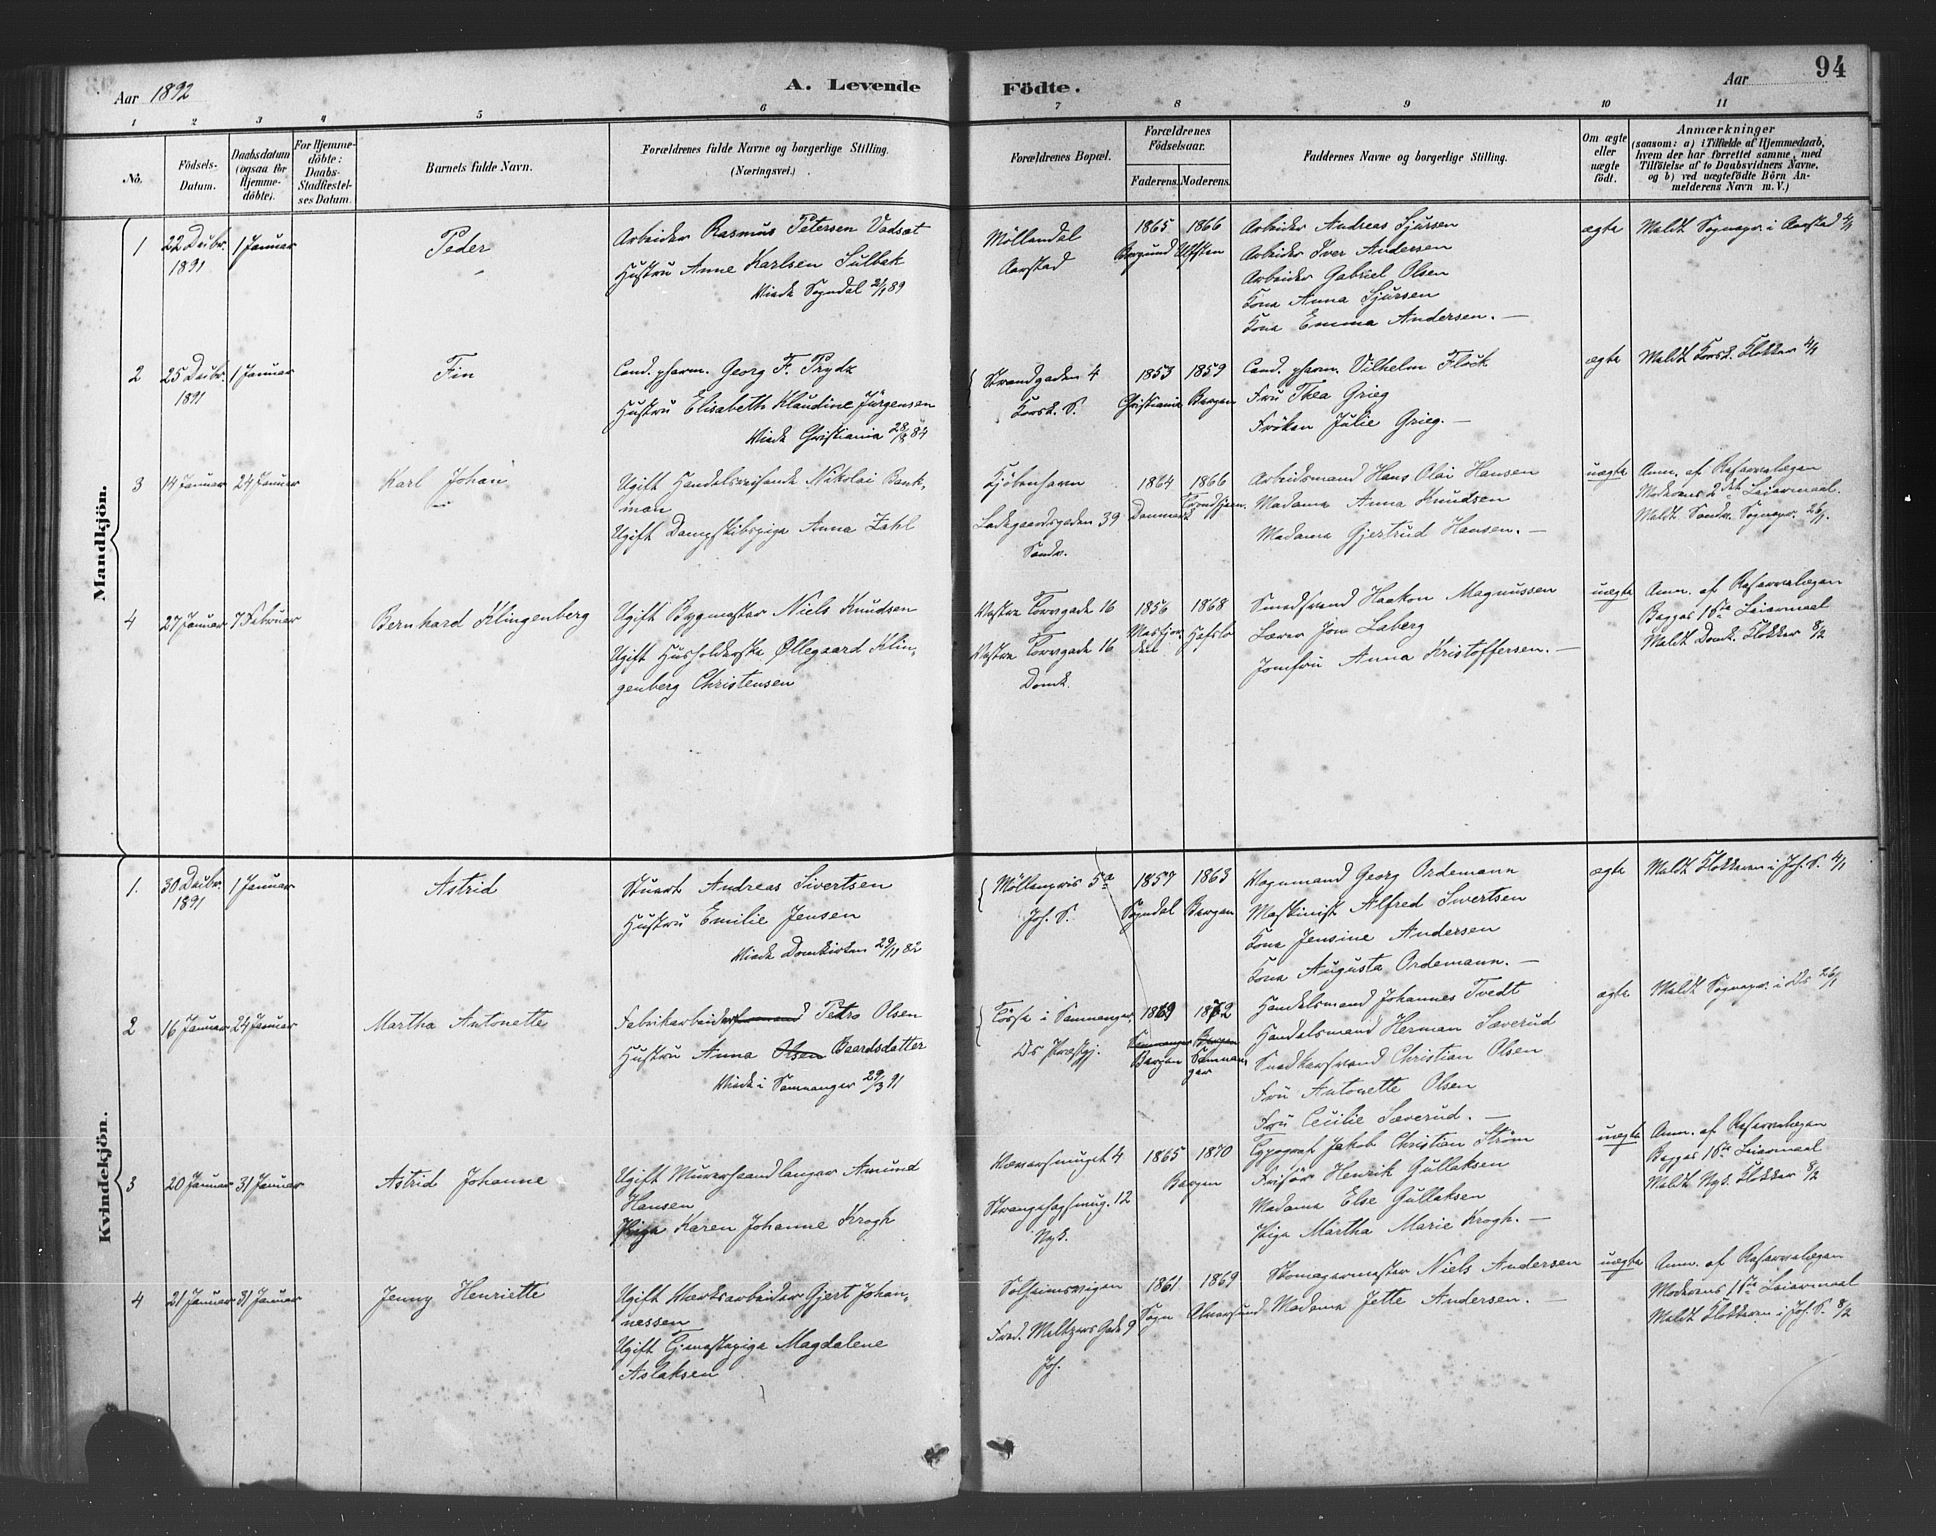 Aar 1892
A. Levende
Födte.
Aar
94
1 2 3 4 5 6 7 8 9 10 11
No.
Födsels-
Datum.
Daabsdatum
(ogsaa for
Hjemme-
döbte).
For Hjemme-
döbte:
Daabs-
Stadfæstel-
ses Datum.
Barnets fulde Navn.
Forældrenes fulde Navne og borgerlige Stilling.
(Næringsvei.)
Forældrenes Bopæl.
Forældrenes
Födselsaar.
Faderens. Moderens.
Faddernes Navne og borgerlige Stilling.
Om ægte
eller
uægte
födt.
Anmærkninger
(saasom: a) i Tilfælde af Hjemmedaab,
hvem der har forrettet samme, med
Tilföielse af to Daabsvidners Navne,
og b) ved uægtefödte Börn An-
melderens Navn m. V.)
Mandkjön.
1
22 Decbr.
1891
1 Januar
Peder
Arbeider Rasmus Petersen Vadsæt
Hustru Anne Karlsen Sulbak
Viede Sogndal 21/1 89
Möllendal
Aarstad
1865 1866
Arbeider Andreas Sjursen
Arbeider Iver Andersen
Arbeider Gabriel Olsen
Kone Anna Sjursen
Kone Emma Andersen. —
ægte
Meldt Sognepr. i Aarstad 4/1
2
25 Decbr.
1891
1 Januar
Fin
Cand. pharm. Georg F. Prydz
Hustru Elisabeth Klaudine Jürgensen
Viede Christiania 28/8 84
Strandgaden 4
Korsk. S.
1853 1859
Christiania Bergen
Cand. pharm. Vilhelm Flock
Fru Thea Grieg
Fröken Julie Grieg. —
ægte
Meldt Korsk. Klokker 4/1
3
14 Januar
24 Januar
Karl Johan
Ugift Handelsreisende Nikolai Bænk-
man
Ugift Dampskibspige Anna Zahl
Kjöbenhavn
Ladegaardsgaden 39
Sandv.
1864 1866
Danmark Trondhjem
Arbeidsmand Hans Olai Hansen
Madame Anna Knudsen
Madame Gjertrud Hansen. —
uægte
Anm. af Reservelægen
Moderens 2det Leiermaal.
Meldt Sandv. Sognepr. 26/1.
4
27 Januar
7 Februar
Bernhard Klingenberg
Ugift Bygmester Niels Knudsen
Ugift Husholderske Øllegaard Klin-
genberg Christensen
Vestre Torvgade 16
Vestre Torvgade 16
Domk.
1856 1868
Masfjor-
den
Hafslo
Smedsvend Haakon Magnussen
Lærer Jon Laberg
Jomfru Anna Kristoffersen. —
uægte
Anm. af Reservelægen
Begges 1ste Leiermaal
Meldt Domk. Klokker 8/2
Kvindekjön.
1.
30 Decbr.
1891
1 Januar
Astrid
Stuert Andreas Sivertsen
Hustru Emilie Jensen
Viede Domkirken 29/11 82
Möllenpris 5a
Joh. S.
1857 1863
Sogndal Bergen
Vognmand Georg Ordemann
Maskinist Alfred Sivertsen
Kone Jensine Andersen
Kone Augusta Ordemann. —
ægte
Meldt Klokkeren i Joh. S. 4/1
2
16 Januar
24 Januar
Martha Antonette
Fabrikarbeider Petro Olsen
Hustru Anna Olsen Baardsdatter
Viede i Samnanger 29/3 91
Tösse i Samnanger,
Os Præstgj.
1869 1872
Samnanger Bergen
Bergen Samnan-
ger
Handelsmand Johannes Tvedt
Handelsmand Herman Sæverud
Snedkersvend Christian Olsen
Fru Antonette Olsen
Fru Cecilie Sæverud. —
ægte
Meldt Sognepr. i Os 26/1
3
20 Januar
31 Januar
Astrid Johanne
Ugift Murerhaandlanger Amund
Hansen
Pige Karen Johanne Krogh
Væversmuget 4
Strangehagsmug. 12
Nyk.
1865 1870
Bergen
Typograf Jakob Christian Ström
Frisör Henrik Gullaksen
Madame Else Gullaksen
Pige Martha Marie Krogh. —
uægte
Anm. af Reservelægen
Begges 1ste Leiermaal
Meldt Nyk. Klokker 8/2
4
21 Januar
31 Januar
Jenny Henriette
Ugift Værksarbeider Gjert Johan-
nessen
Ugift Tjenestepige Magdalene
Aslaksen
Solheimsvigen
Fred. Meltzers Gade 9
Joh.
1861 1869
Sogn Alversund
Skomagermester Niels Andersen
Madame Jette Andersen. —
uægte
Anm. af Reservelægen
Moderens 1ste Leiermaal
Meldt Klokkeren i Joh. S. 8/2